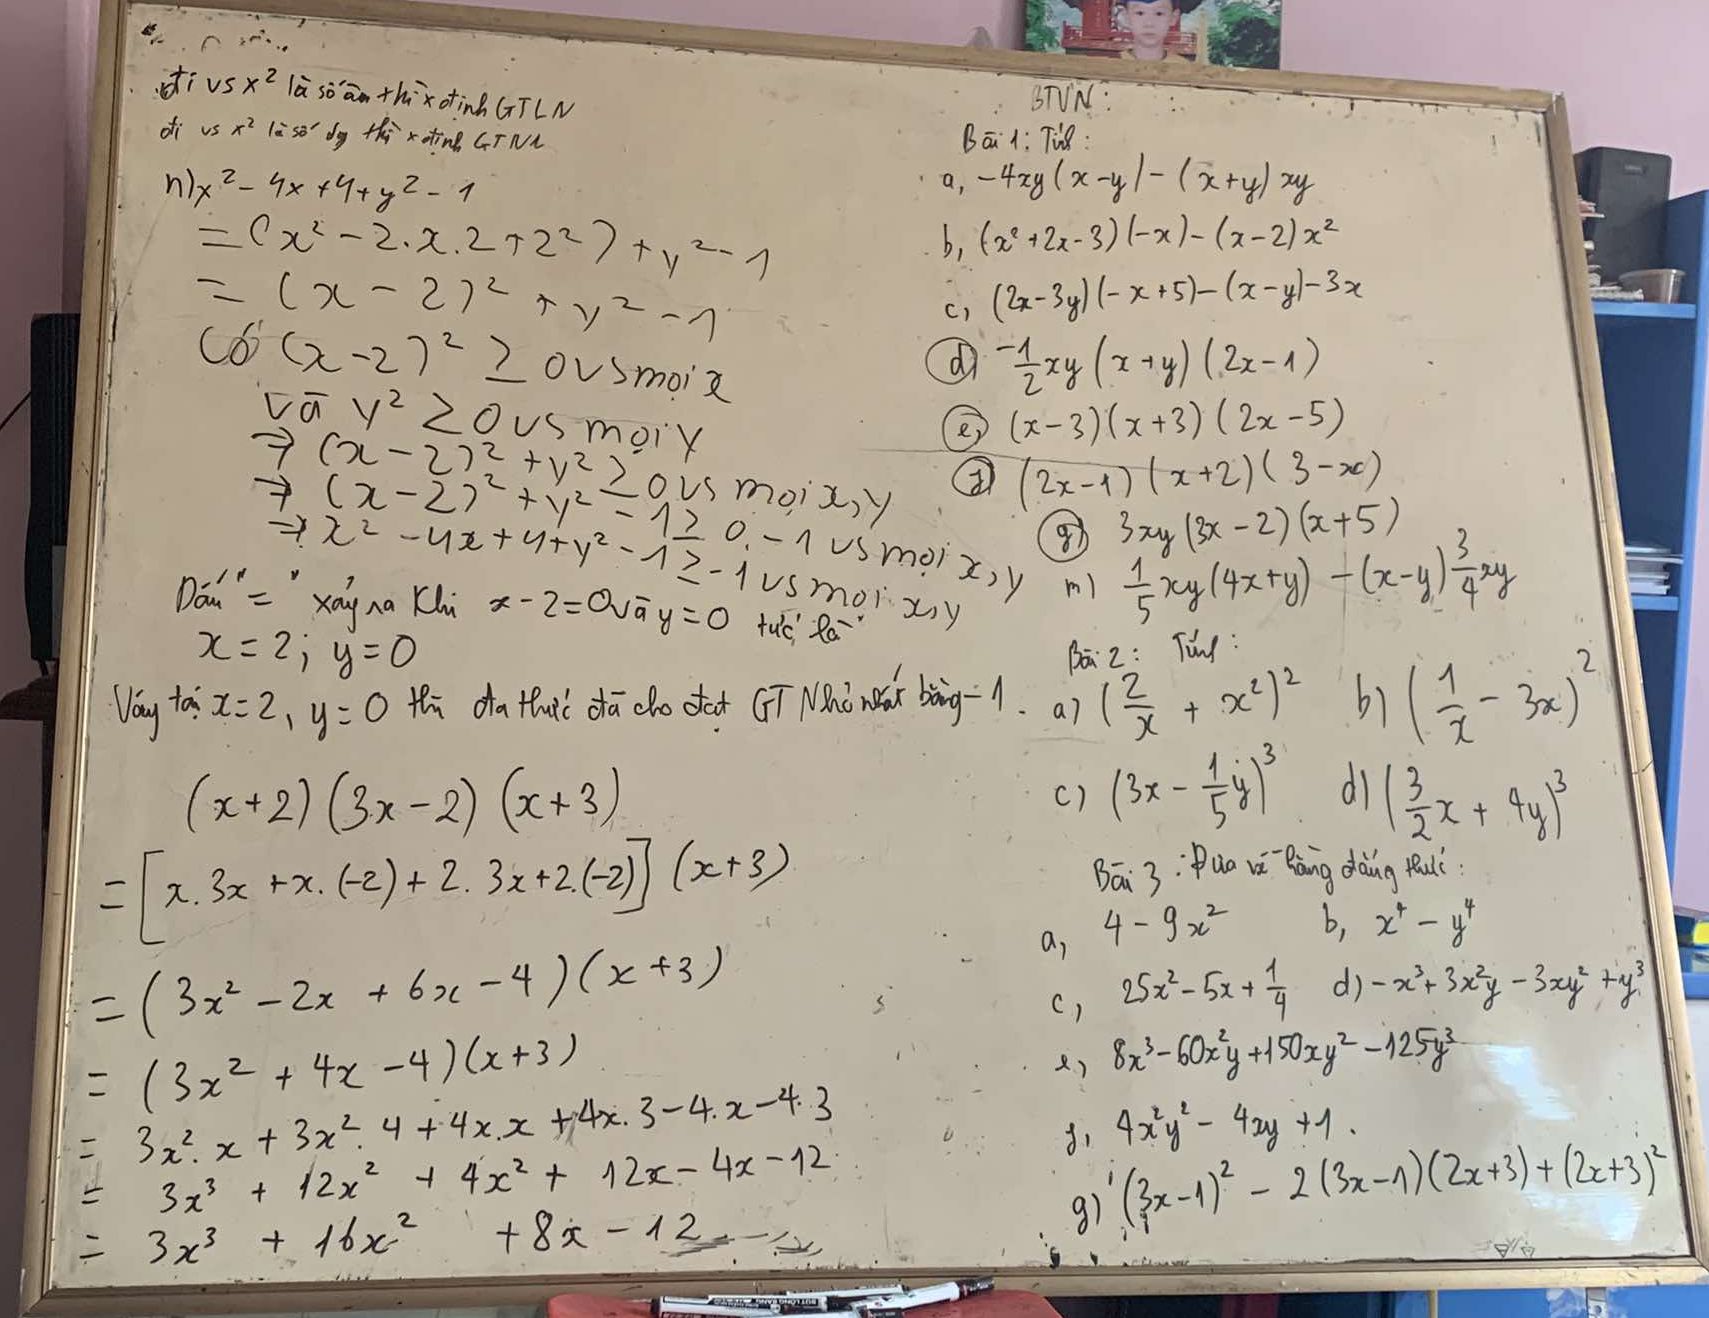 đi vs x² là số âm thì x định GTLN
đi vs x² là số dg thì x định GTNN
n) x² - 4x + 4 + y² - 1
= (x² - 2.x.2 + 2²) + y² - 1
= (x - 2)² + y² - 1
Có (x - 2)² ≥ 0 vs mọi x
và y² ≥ 0 vs mọi y
⇒ (x - 2)² + y² ≥ 0 vs mọi x, y
⇒ (x - 2)² + y² - 1 ≥ 0 - 1 vs mọi x, y
⇒ x² - 4x + 4 + y² - 1 ≥ -1 vs mọi x, y
Dấu "=" xảy ra khi x - 2 = 0 và y = 0 tức là
x = 2; y = 0
Vậy tại x = 2, y = 0 thì đa thức đã cho đạt GT Nhỏ nhất bằng -1.
(x+2)(3x-2)(x+3)
= [x.3x + x.(-2) + 2.3x + 2.(-2)](x+3)
= (3x² - 2x + 6x - 4)(x+3)
= (3x² + 4x - 4)(x+3)
= 3x².x + 3x².4 + 4x.x + 4x.3 - 4.x - 4.3
= 3x³ + 12x² + 4x² + 12x - 4x - 12
= 3x³ + 16x² + 8x - 12
BTVN:
Bài 1: Tính:
a, -4xy(x-y) - (x+y)xy
b, (x² + 2x - 3)(-x) - (x-2)x²
c, (2x-3y)(-x+5) - (x-y) - 3x
d) -1/2xy(x+y)(2x-1)
e) (x-3)(x+3)(2x-5)
f) (2x-1)(x+2)(3-x)
g) 3xy(3x-2)(x+5)
m) 1/5xy(4x+y) - (x-y)3/4xy
Bài 2: Tính:
a) (2/x + x²)² b) (1/x - 3x)²
c) (3x - 1/5y)³ d) (3/2x + 4y)³
Bài 3: Đưa về hằng đẳng thức:
a, 4 - 9x² b, x⁴ - y⁴
c, 25x² - 5x + 1/4 d) -x³ + 3x²y - 3xy² + y³
e, 8x³ - 60x²y + 150xy² - 125y³
f, 4x²y² - 4xy + 1.
g) (3x-1)² - 2(3x-1)(2x+3) + (2x+3)²